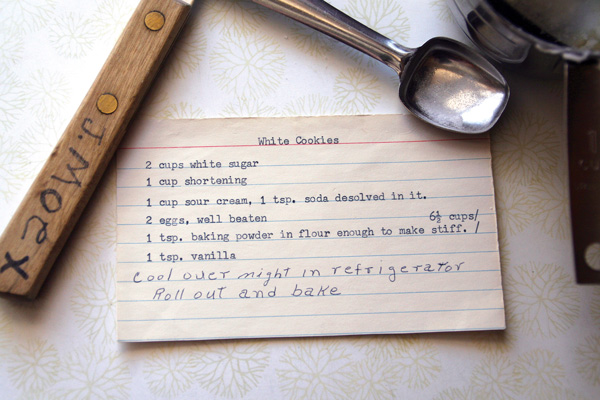 J. Moex
White Cookies
2 cups white sugar
1 cup shortening
1 cup sour cream, 1 tsp. soda desolved in it.
2 eggs, well beaten
6½ cups/
1 tsp. baking powder in flour enough to make stiff. /
1 tsp. vanilla
Cool over night in refrigerator
Roll out and bake